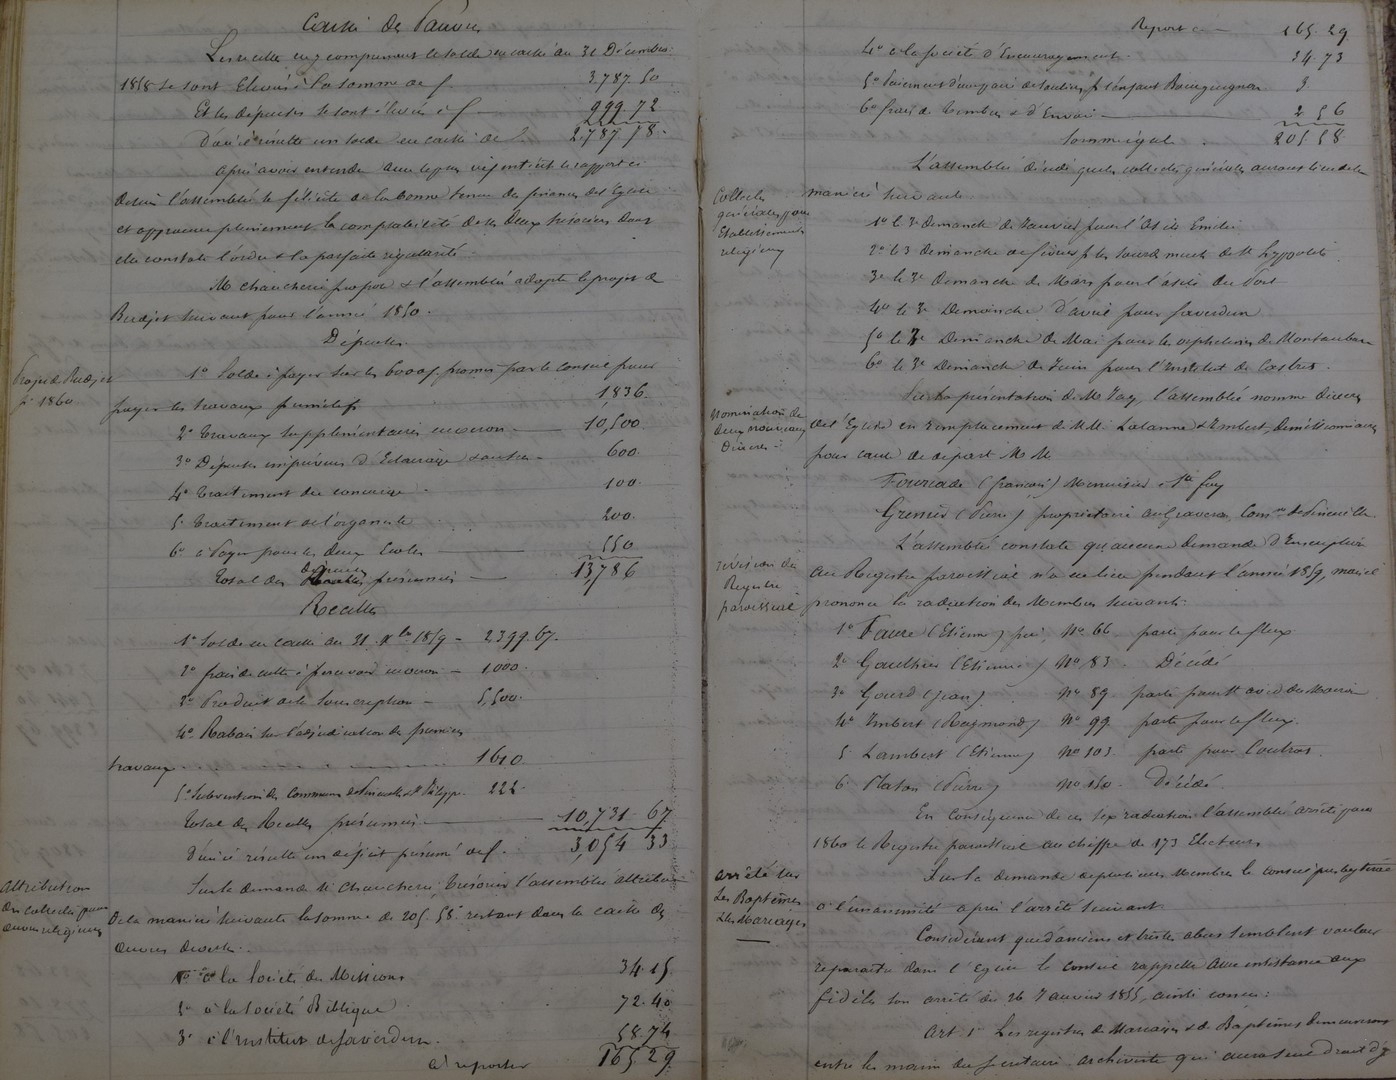 Caisse des Pauvres
Les recettes en y comprenant le solde en caisse au 31 Décembre
1858 se sont élevées à la somme de f 3787 50
Et les dépenses se sont élevées à f 999 72
D'où il résulte un solde en caisse de 2787 78
après avoir entendu avec le plus vif intérêt le rapport ci
dessus l'assemblée se félicite de la bonne tenue des finances de l'Eglise
et approuve pleinement la comptabilité de ses deux trésoriers dont
elle constate l'ordre & la parfaite régularité.
M. Chaucherie propose & l'assemblée adopte le projet de
Budget suivant pour l'année 1860.
Dépenses
Projet de Budget
pr 1860
1° Solde à payer sur les 6000 f. promis par le conseil pour
payer les travaux primitifs 1836.
2° Travaux supplémentaires environ 10,500
3° Dépenses imprévues d'Eclairage & autres 600.
4° Traitement du concierge 100.
5° Traitement de l'organiste 200.
6° à Payer pour les deux Ecoles 550
Total des dépenses présumées 13,786
Recettes
1° Solde en caisse au 31 Xbre 1859 2399.67.
2° frais de culte à percevoir environ 1000.
3° Produit de la souscription 5,500.
4° Rabais sur l'adjudication des premiers
travaux 1610
5° Subvention des Communes de Pineuilh & St Philippe 222.
Total des Recettes présumées 10,731 67
D'où il résulte un déficit présumé de f. 3,054 33
Attribution
des collectes pour
œuvres religieuses
Sur la demande de M. Chaucherie, trésorier l'assemblée attribue
de la manière suivante la somme de 205.58 restant dans la caisse des
œuvres diverses.
1° à la Société des Missions 34.15
2° à la Société Biblique 72.40
3° à l'Institut de Saverdun. 58.74
à reporter 165.29
Report 165.29
4° à la Société d'Encouragement 34.73
5° Paiement d'une paire de souliers pr l'enfant Bourguignon 3
6° frais de timbres & d'Envoi 2 56
Somme égale 205 58
L'assemblée décide que les collectes générales auront lieu de la
manière suivante
Collectes
générales pour
Etablissements
religieux
1° le 3e dimanche de Janvier pour l'Asile Emilie
2° le 3 dimanche de février pr les sourds muets de St Hyppolite.
3° le 3e Dimanche de Mars pour l'asile du Port
4° le 3e Dimanche d'avril pour Saverdun
5° le 3e Dimanche de Mai pour les orphelines de Montauban
6° le 3e Dimanche de Juin pour l'Institut de Castres.
Nomination de
deux nouveaux
Diacres
Sur la présentation de M. Jay, l'assemblée nomme diacres
de l'Eglise en remplacement de MM. Lalanne & Imbert, démissionnaires
pour cause de départ MM.
Fouriade (françois) Menuisier à Ste foy
Grenier (Pierre) propriétaire aux Graves Comne de Pineuilh
révision du
Registre
paroissial
L'assemblée constate qu'aucune demande d'Inscription
au Registre paroissial n'a eu lieu pendant l'année 1859, mais il
prononce la radiation des Membres suivants.
1° Faure (Etienne) père, N° 66 parti pour le fleix
2° Gauthier (Etienne) N° 83. Décédé
3° Gourd (Jean) N° 89 parti pour St avit du Moiron
4° Imbert (Raymond) N° 99 parti pour le fleix.
5° Lambert (Etienne) N° 103 parti pour Coutras.
6° Platon (Pierre) N° 150 Décédé.
En conséquence de ces six radiations l'assemblée arrête pour
1860 le Registre paroissial au chiffre de 173 Electeurs
arrêté sur
Les Baptêmes
& les Mariages
Sur la demande de plusieurs Membres le conseil presbytéral
a à l'unanimité pris l'arrêté suivant.
Considérant que d'anciens et tristes abus semblent vouloir
reparaître dans l'Eglise le conseil rappelle avec insistance aux
fidèles son arrêté du 26 Janvier 1855, ainsi conçu:
Art. 1er Les registres de Mariages & de Baptêmes demeureront
entre les mains du secrétaire archiviste qui aura seul droit d'y